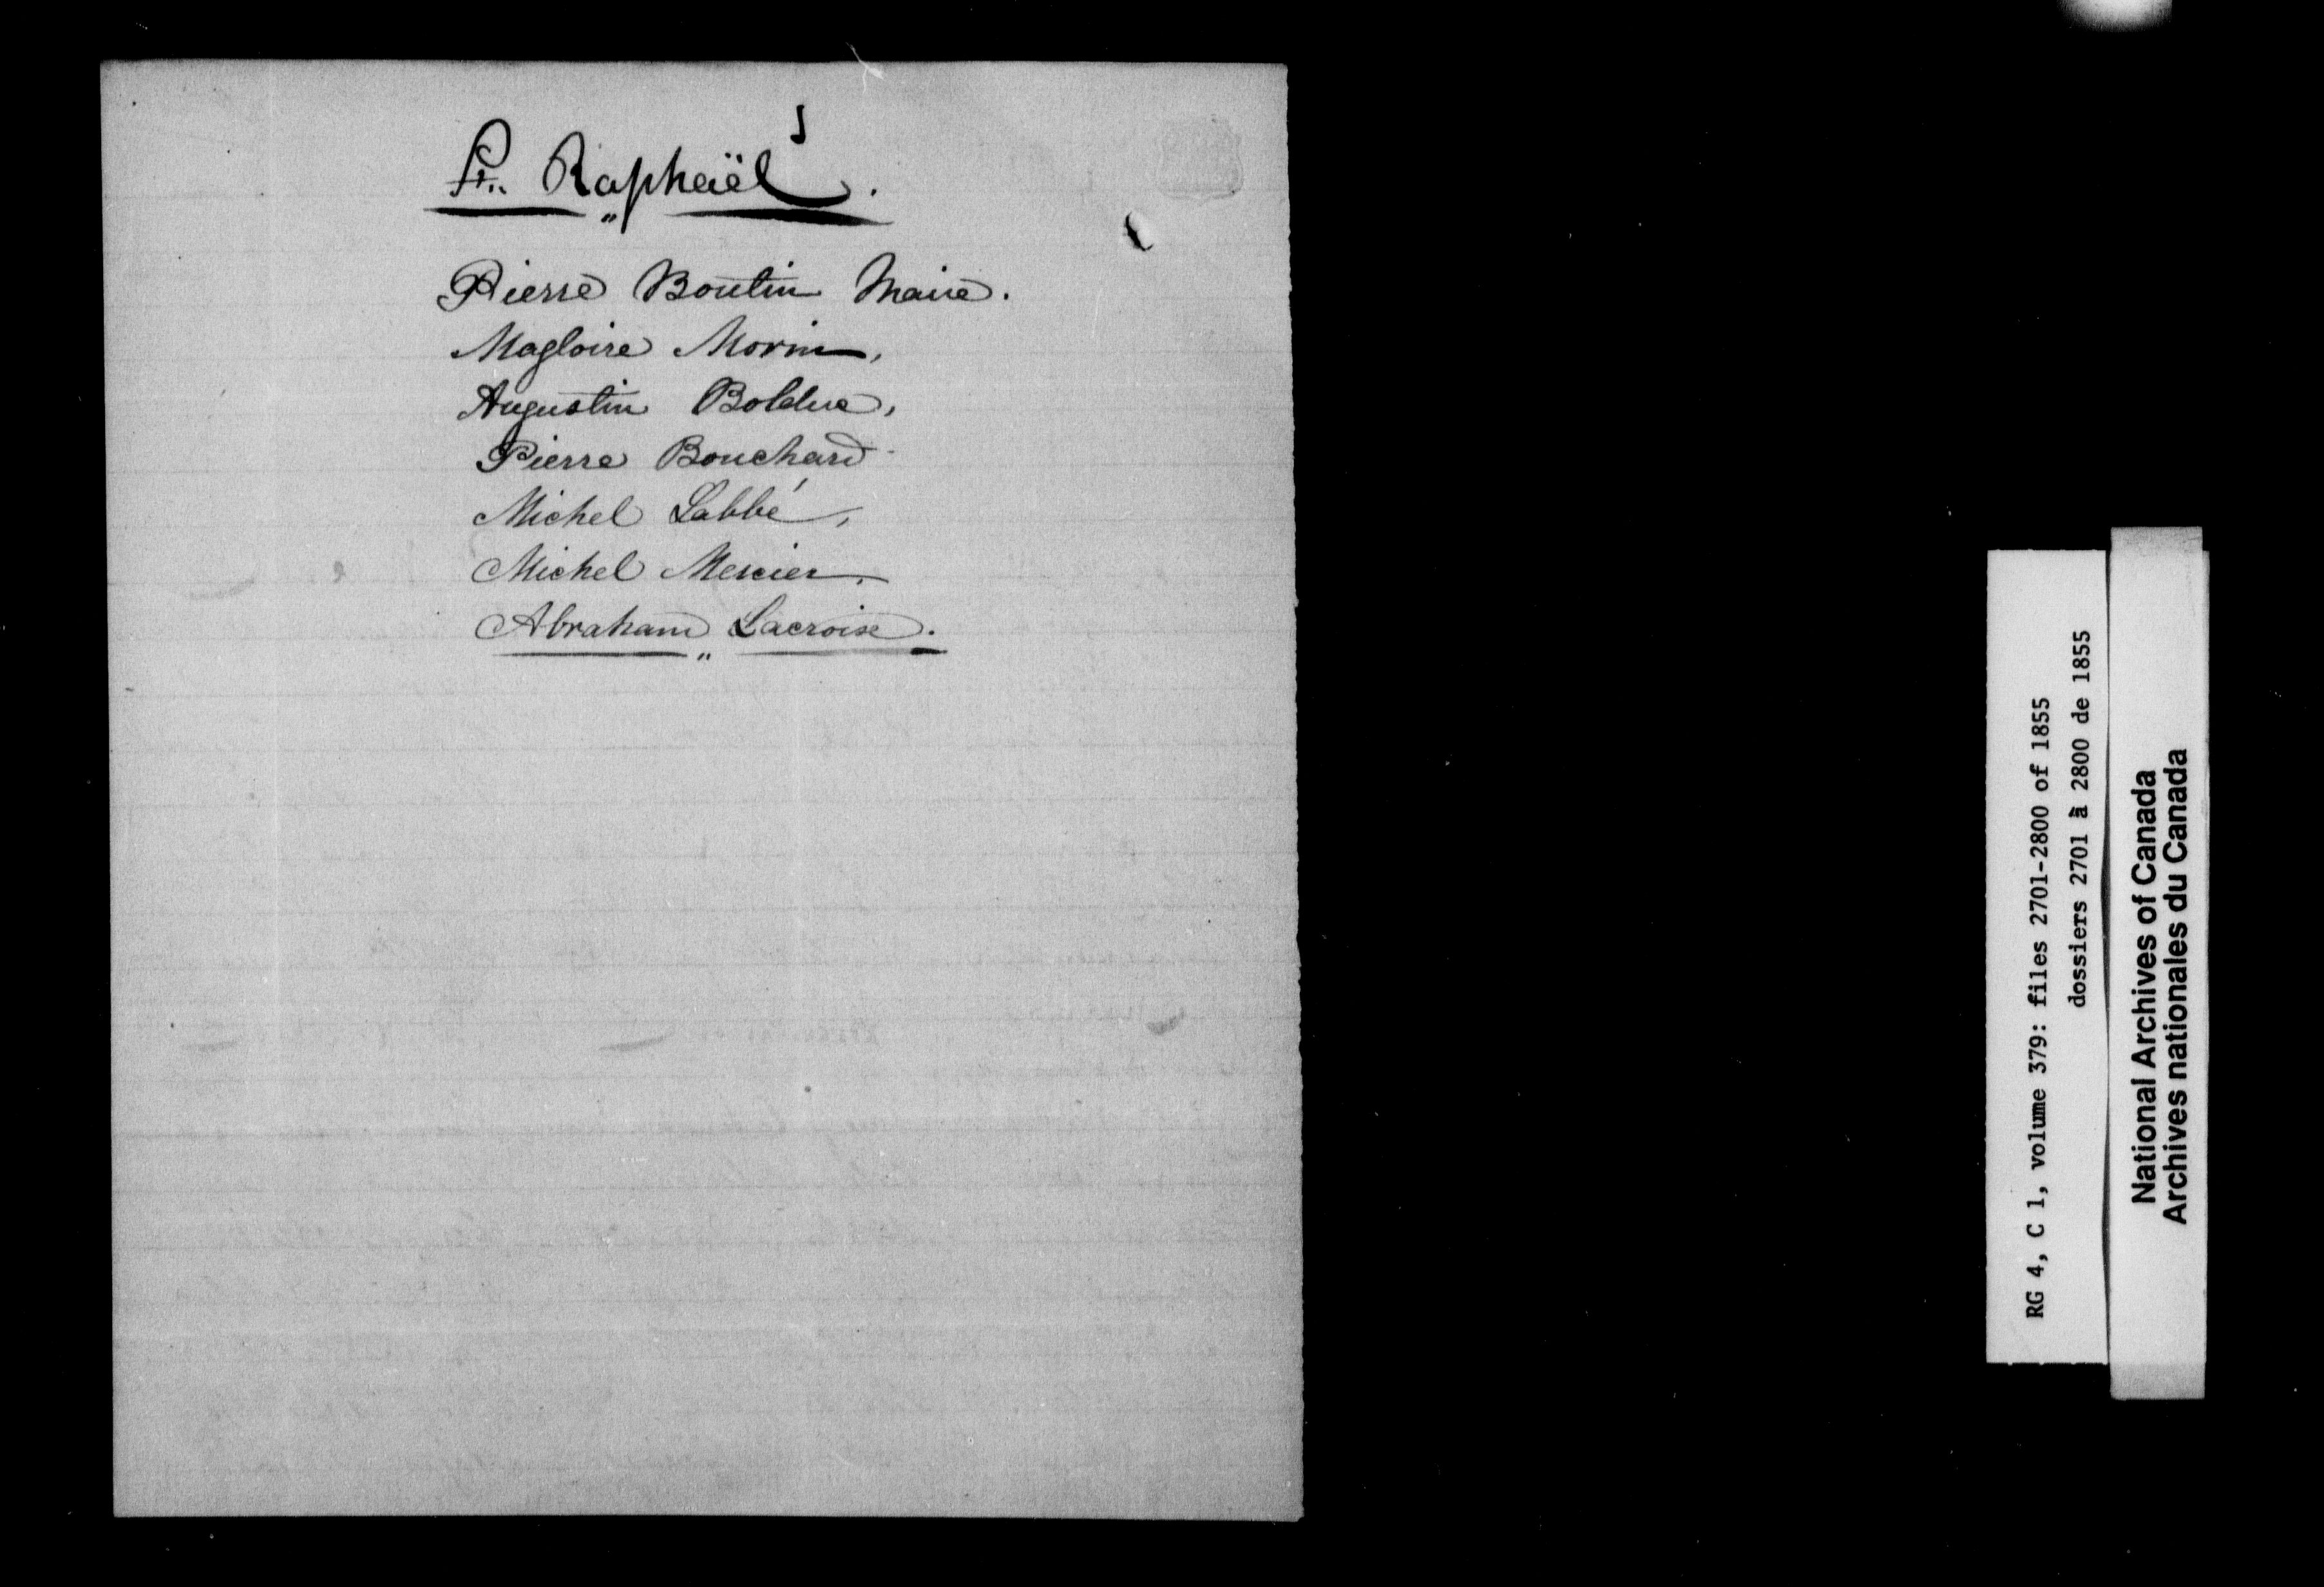 St. Raphaël.
Pierre Boutin Maire.
Magloire Morin,
Augustin Bolduc,
Pierre Bouchard
Michel Labbé,
Michel Mercier,
Abraham Lacroix.
RG 4, C 1, volume 379: files 2701-2800 of 1855
dossiers 2701 à 2800 de 1855
National Archives of Canada
Archives nationales du Canada